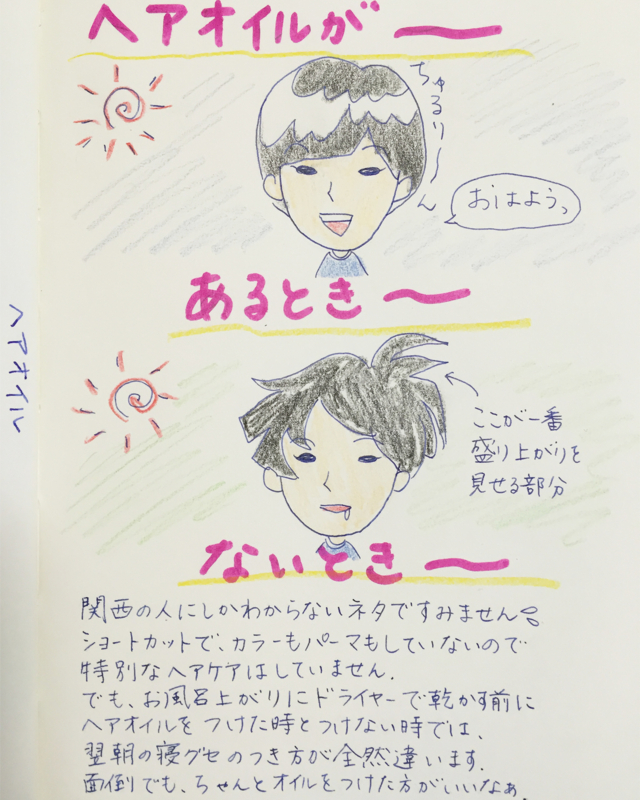 ヘアオイルが〜
ちゅるり〜ん
おはようっ
あるとき〜
ヘアオイル
ここが一番
盛り上がりを
見せる部分
ないとき〜
関西の人にしかわからないネタですみません
ショートカットで、カラーもパーマもしていないので
特別なヘアケアはしていません.
でも、お風呂上がりにドライヤーで乾かす前に
ヘアオイルをつけた時とつけない時では、
翌朝の寝グセのつき方が全然違います.
面倒でも、ちゃんとオイルをつけた方がいいなぁ.